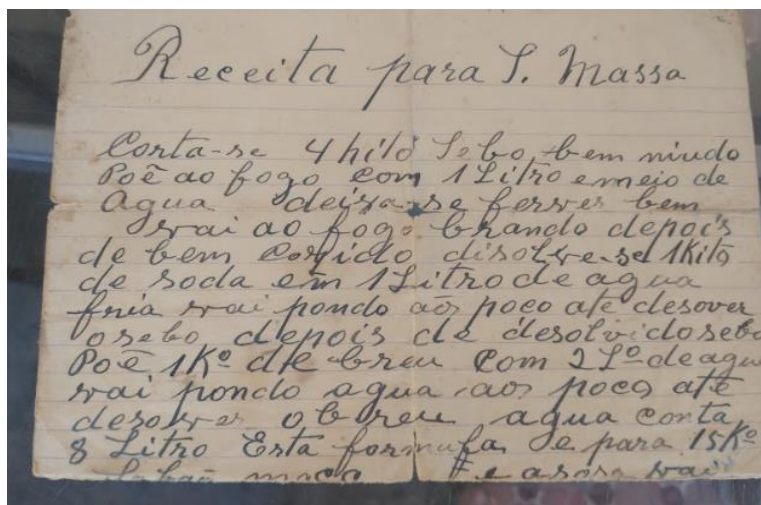 Receita para S. Massa
Corta-se 4 hilo Sebo bem miudo
Poẽ ao fogo com 1 Litro e meio de
Agua deixa-se ferver bem
vai ao fogo brando depois
de bem cosido disolve-se 1 Kilo
de soda em 1 Litro de agua
fria vai pondo aos poco até desover
o sebo depois de desolvido sebo
Poẽ 1 Kº de breu com 2 Lº de agua
vai pondo agua aos poco até
desolver o breu agua conta
8 Litro Esta formula e para 15 Kº
vai